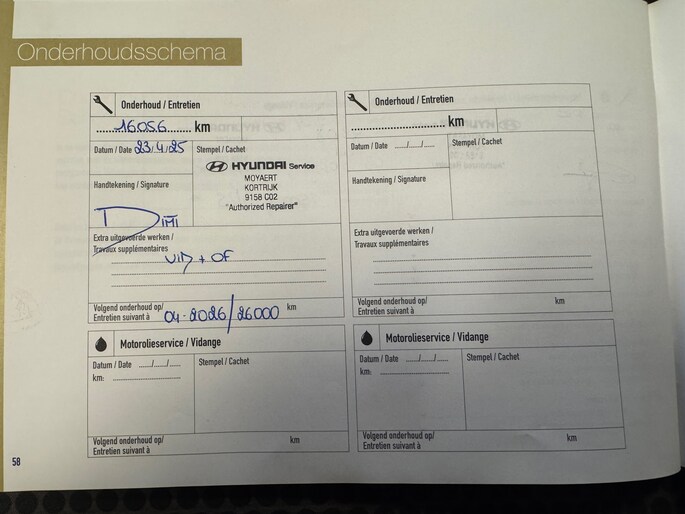 Onderhoudsschema
Onderhoud / Entretien
16056 km
Datum / Date 23/4/25
Stempel / Cachet
HYUNDAI Service
MOYAERT
KORTRIJK
9158 C02
"Authorized Repairer"
Handtekening / Signature
DIMI
Extra uitgevoerde werken /
Travaux supplémentaires
+ OF
Volgend onderhoud op/
Entretien suivant à 04-2026/26000 km
Motorolieservice / Vidange
Datum / Date ...../...../.....
km: ..............................
Stempel / Cachet
Volgend onderhoud op/
Entretien suivant à
km
Onderhoud / Entretien
.............................. km
Datum / Date ...../...../.....
Stempel / Cachet
Handtekening / Signature
Extra uitgevoerde werken /
Travaux supplémentaires
Volgend onderhoud op/
Entretien suivant à
km
Motorolieservice / Vidange
Datum / Date ...../...../.....
km: ..............................
Stempel / Cachet
Volgend onderhoud op/
Entretien suivant à
km
58